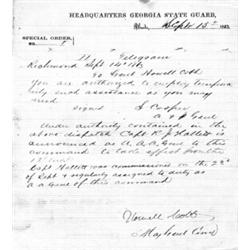 HEADQUARTERS GEORGIA STATE GUARD,
Sept 15th 1863.
SPECIAL ORDER,
NO.
Telegram
Richmond Sept 14th
To Genl Howell Cobb
You are authorized to employ tempora
rily such assistance as you may
need
Signed S Cooper
A & I Genl
Under authority contained in the
above dispatch Capt R J Hallett is
announced as A. A. A. Genl to this
command to take effect from the
Capt Hallett was commissioned on the 22d
of Sept & regularly assigned to duty as
a a Genl of this command
Howell Cobb
Maj Genl Comd